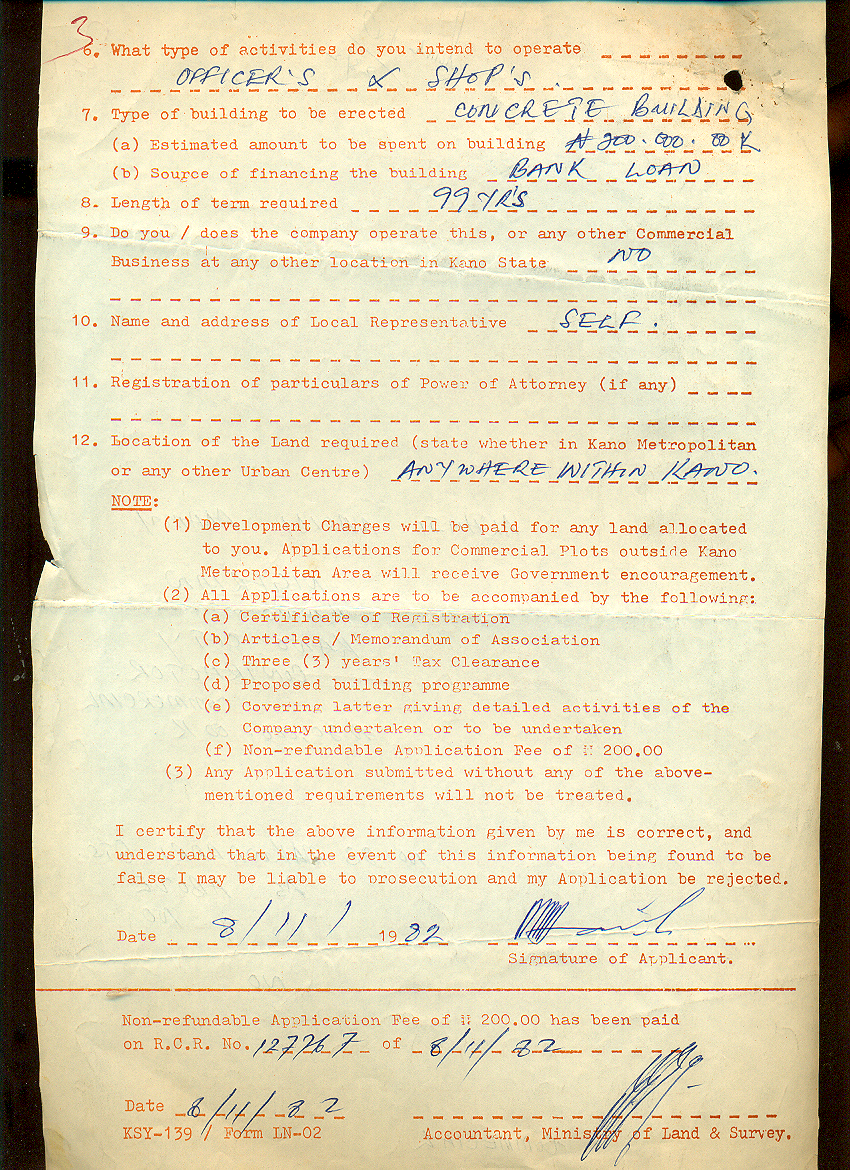 3
6. What type of activities do you intend to operate
OFFICER'S & SHOP'S.
7. Type of building to be erected CONCRETE BUILDING
(a) Estimated amount to be spent on building ₦ 200.000.00 K
(b) Source of financing the building BANK LOAN
8. Length of term required 99 YR'S
9. Do you / does the company operate this, or any other Commercial
Business at any other location in Kano State NO
10. Name and address of Local Representative SELF.
11. Registration of particulars of Power of Attorney (if any)
12. Location of the Land required (state whether in Kano Metropolitan
or any other Urban Centre) ANYWHERE WITHIN KANO.
NOTE:
(1) Development Charges will be paid for any land allocated
to you. Applications for Commercial Plots outside Kano
Metropolitan Area will receive Government encouragement.
(2) All Applications are to be accompanied by the following:
(a) Certificate of Registration
(b) Articles / Memorandum of Association
(c) Three (3) years' Tax Clearance
(d) Proposed building programme
(e) Covering latter giving detailed activities of the
Company undertaken or to be undertaken
(f) Non-refundable Application Fee of ₦ 200.00
(3) Any Application submitted without any of the above-
mentioned requirements will not be treated.
I certify that the above information given by me is correct, and
understand that in the event of this information being found to be
false I may be liable to prosecution and my Application be rejected.
Date 8/11/ 1982
Signature of Applicant.
Non-refundable Application Fee of ₦ 200.00 has been paid
on R.C.R. No. 127767 of 8/11/82
Date 8/11/82
KSY-139 / Form LN-02 Accountant, Ministry of Land & Survey.